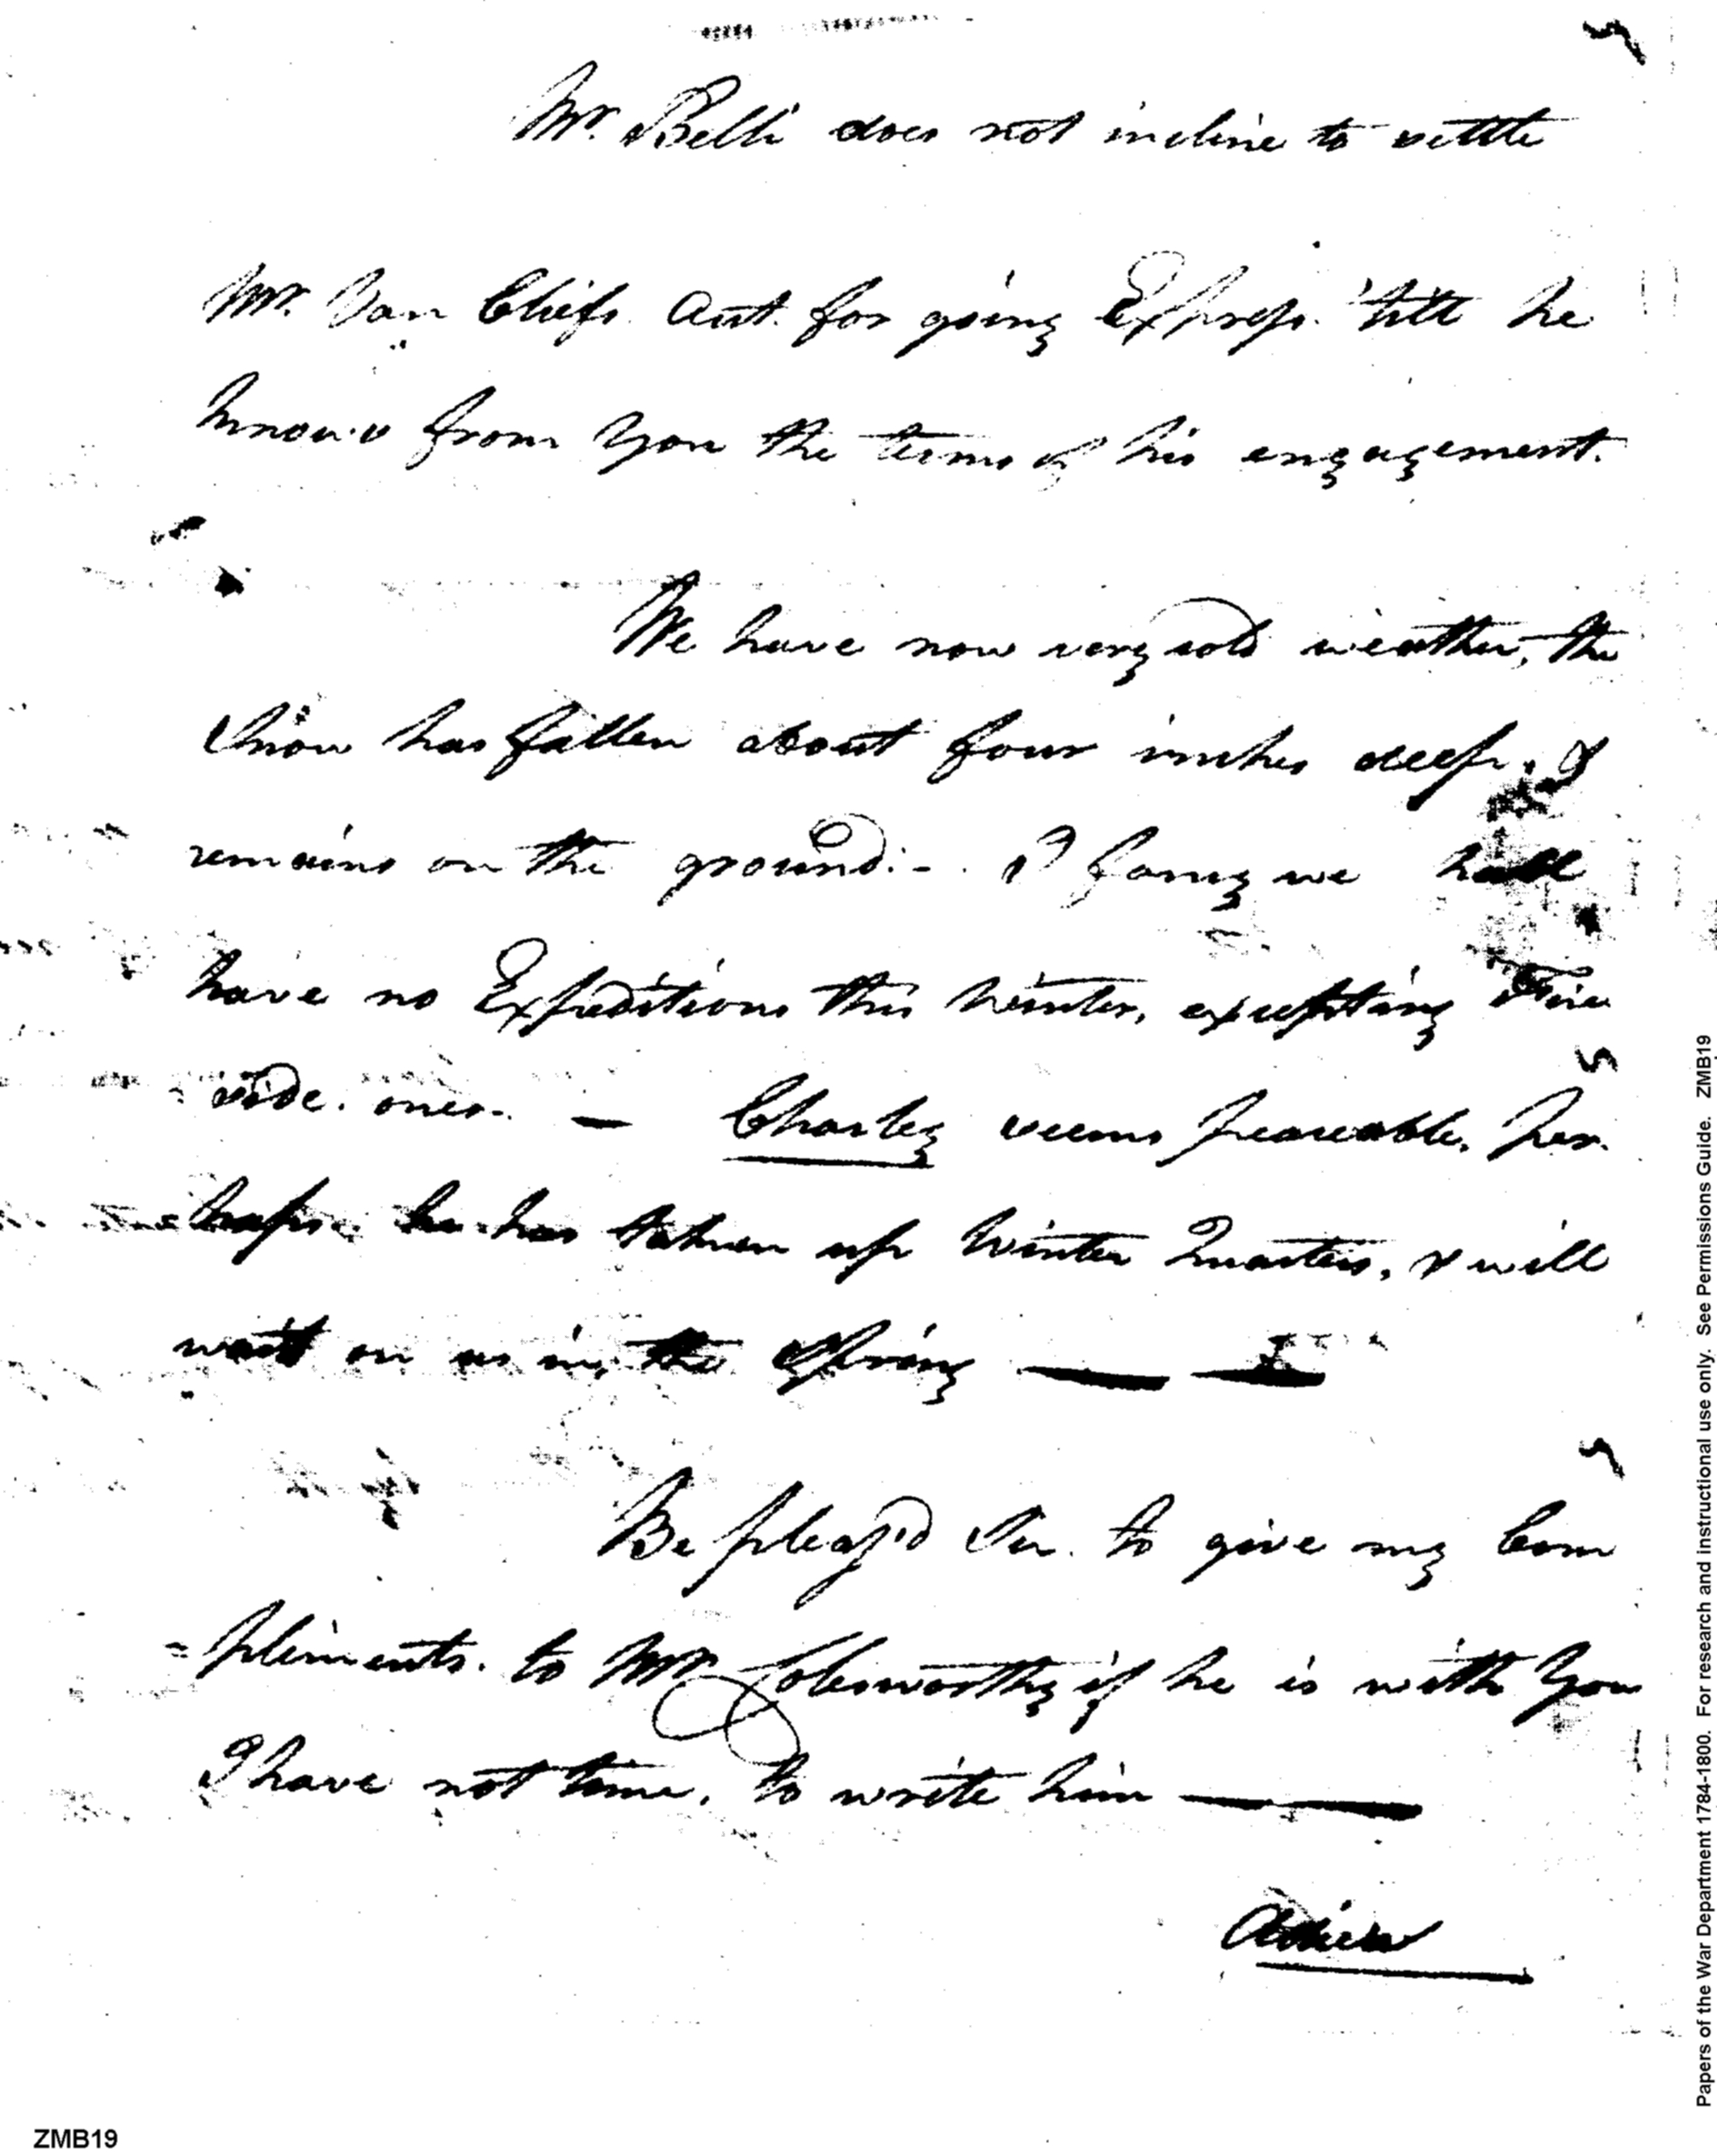 Mr. Belli does not incline to settle
Mr. Van Cliefs Acct. for going Express. till he
knows from you the terms of his engagement.
We have now very cold weather, the
Snow has fallen about four inches deep, &
remains on the ground:-. I fancy we
have no Expeditions this Winter, excepting Fire
side. ones. — Charley seems peaceable, per.
haps he has taken up Winter Quarters, & will
wait on us in the Spring ——
Be pleas'd Sir. to give my Com
=pliments. to Mr. Colesworthy if he is with you
I have not time, to write him ——
Adieu
ZMB19
Papers of the War Department 1784-1800. For research and instructional use only. See Permissions Guide. ZMB19